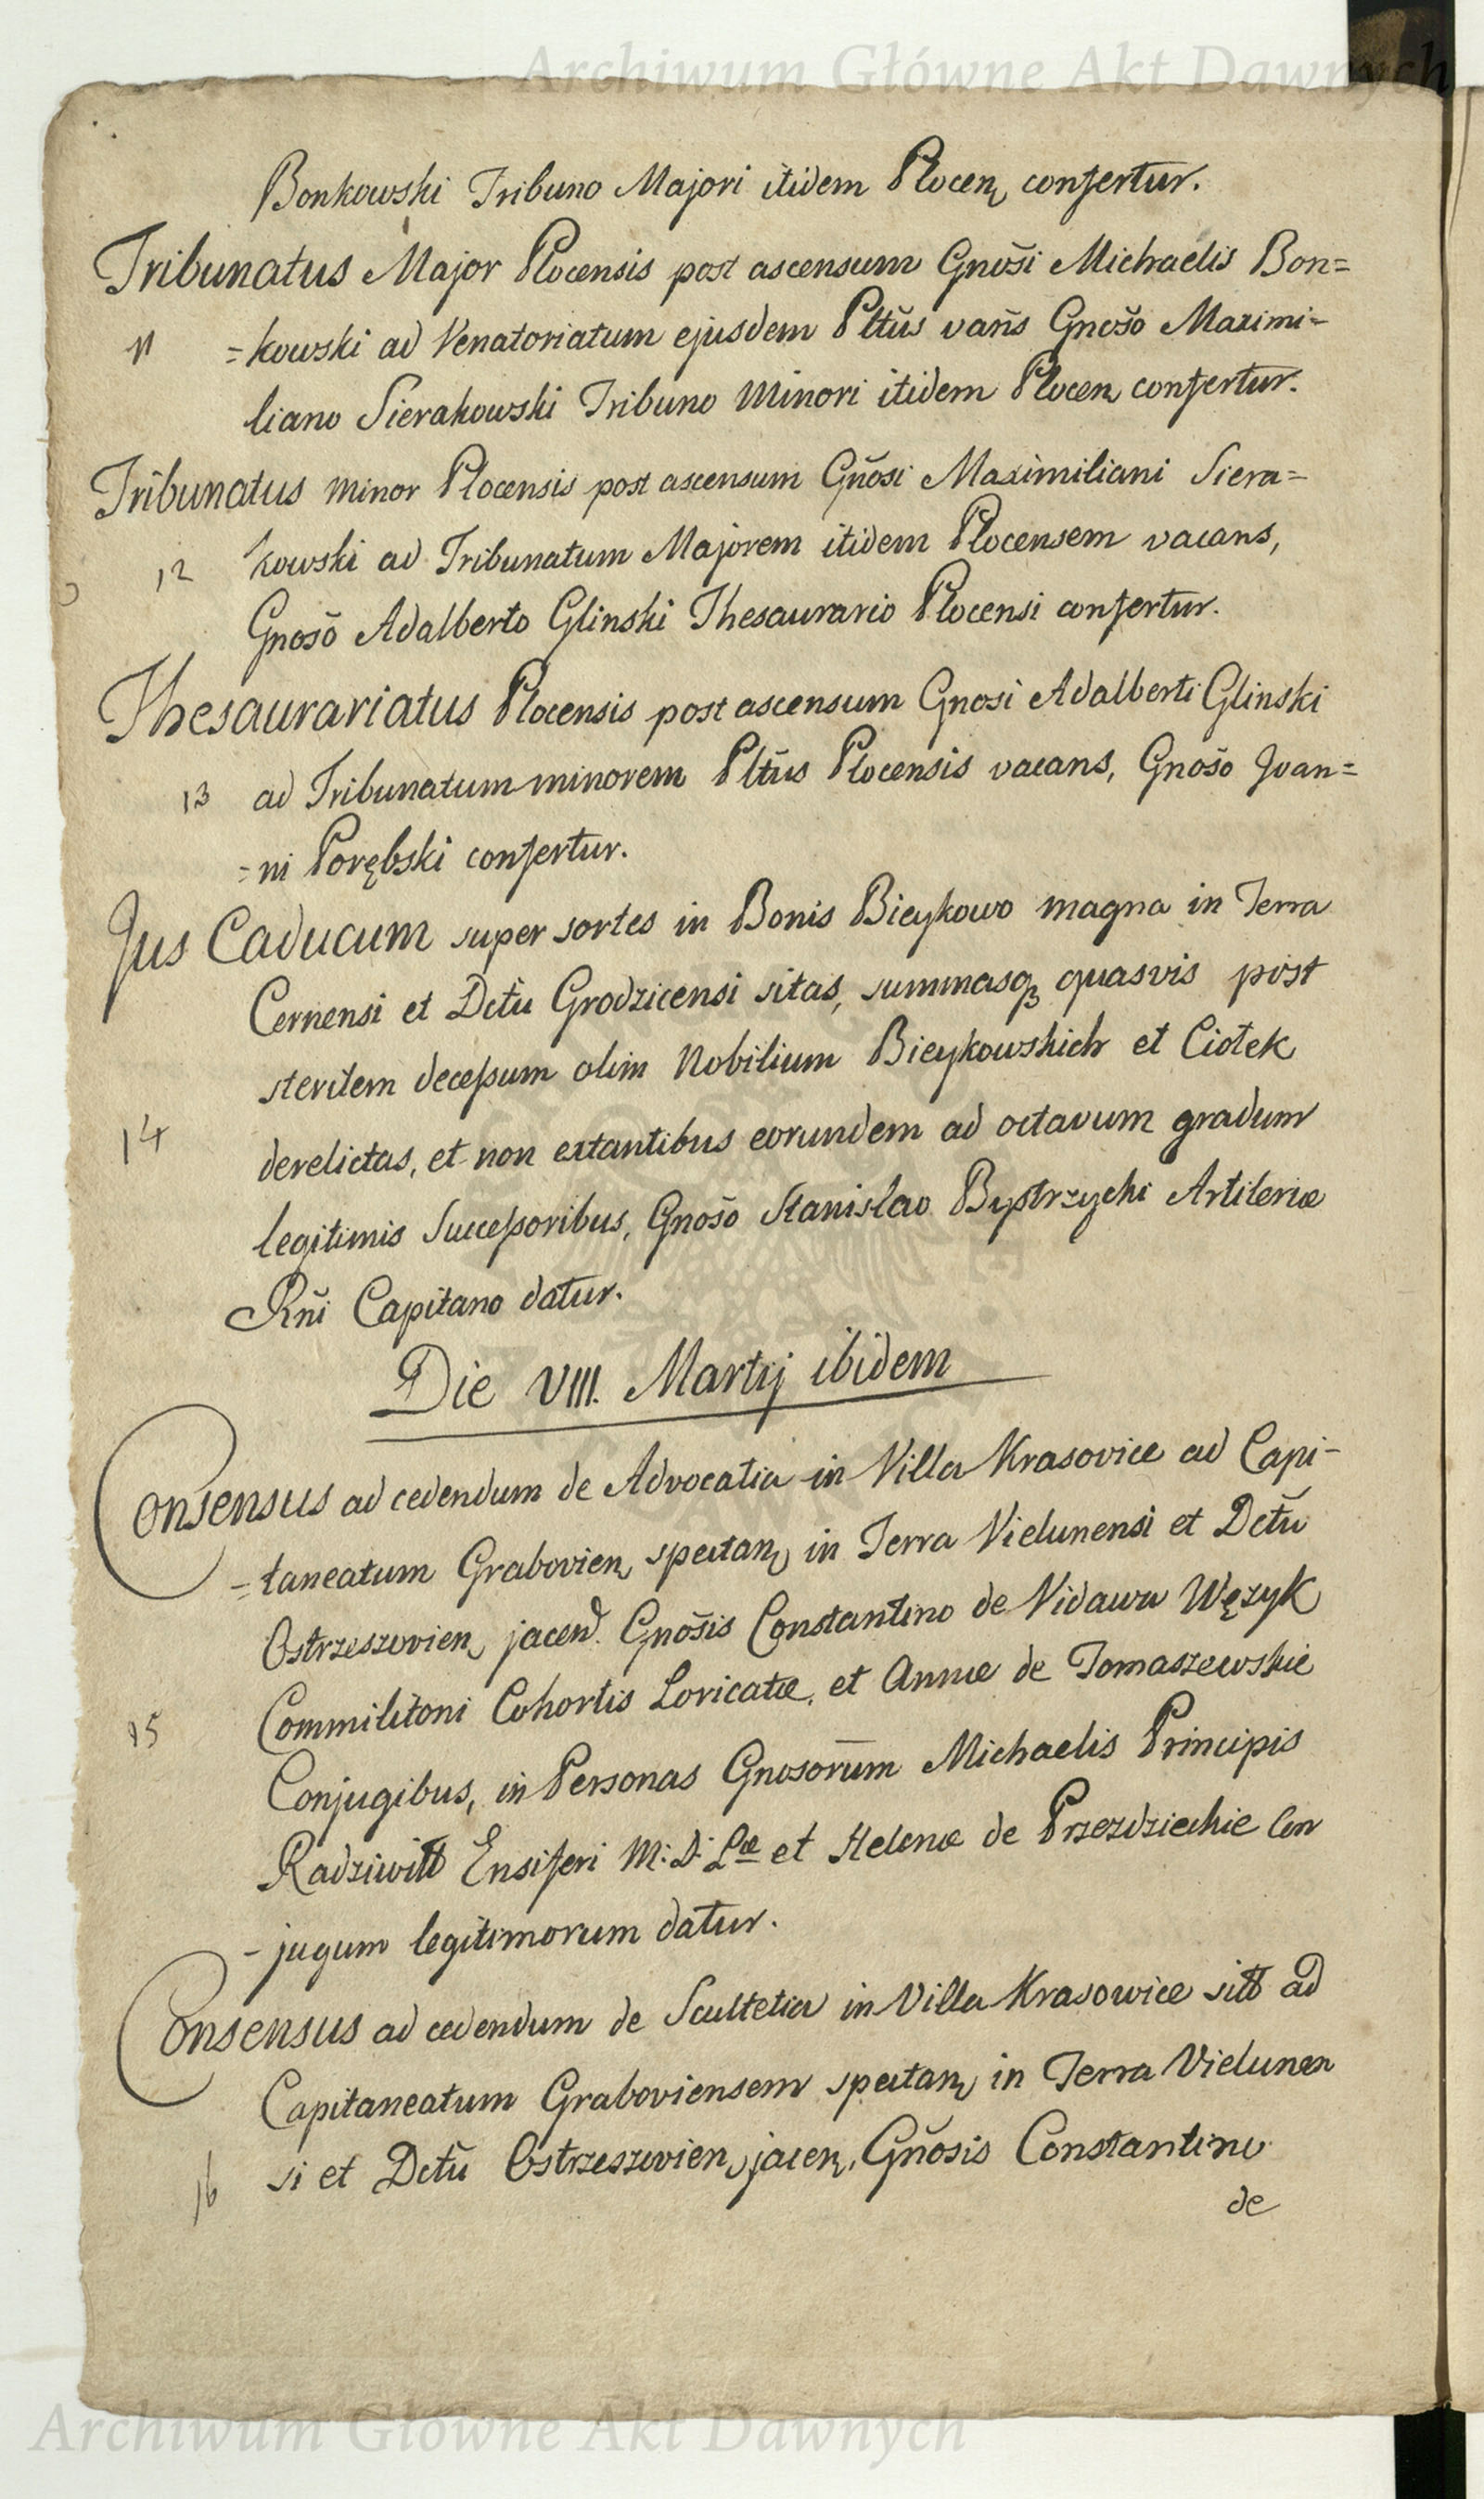 Archiwum Główne Akt Dawnych
Bonkowski Tribuno Majori itidem Plocen confertur.
Tribunatus Major Plocensis post ascensum Gnosi Michaelis Bon=
11 =kowski ad Venatoriatum ejusdem Pltus vans Gnoso Maximi-
liano Sierakowski Tribuno Minori itidem Plocen confertur.
Tribunatus minor Plocensis post ascensum Gnosi Maximiliani Siera=
12 kowski ad Tribunatum Majorem itidem Plocensem vacans,
Gnoso Adalberto Glinski Thesaurario Plocensi confertur.
Thesaurariatus Plocensis post ascensum Gnosi Adalberti Glinski
13 ad Tribunatum minorem Pltus Plocensis vacans, Gnoso Joan=
=ni Porębski confertur.
Jus Caducum super sortes in Bonis Bieykowo magna in Terra
Cernensi et Dctu Grodzicensi sitas, summasq quasvis post
sterilem decessum olim Nobilium Bieykowskich et Ciołek
14 derelictas, et non extantibus eorundem ad octavum gradum
legitimis Successoribus, Gnoso Stanislao Bystrzycki Artileriæ
Rni Capitano datur.
Die VIII. Martij ibidem
Consensus ad cedendum de Advocatia in Villa Krasovice ad Capi-
=taneatum Grabovien spectan in Terra Vielunensi et Dctu
Ostrzeszovien jacend. Gnosis Constantino de Vidawa Wężyk
15 Commilitoni Cohortis Loricatæ, et Annæ de Tomaszewskie
Conjugibus, in Personas Gnosorum Michaelis Principis
Radziwiłł Ensiferi M: D: Læ et Helenæ de Przezdzieckie Con
-jugum legitimorum datur.
Consensus ad cedendum de Scultetia in Villa Krasowice sitt ad
Capitaneatum Graboviensem spectan in Terra Vielunen
16 si et Dctu Ostrzeszovien jacen, Gnosis Constantino
de
Archiwum Główne Akt Dawnych